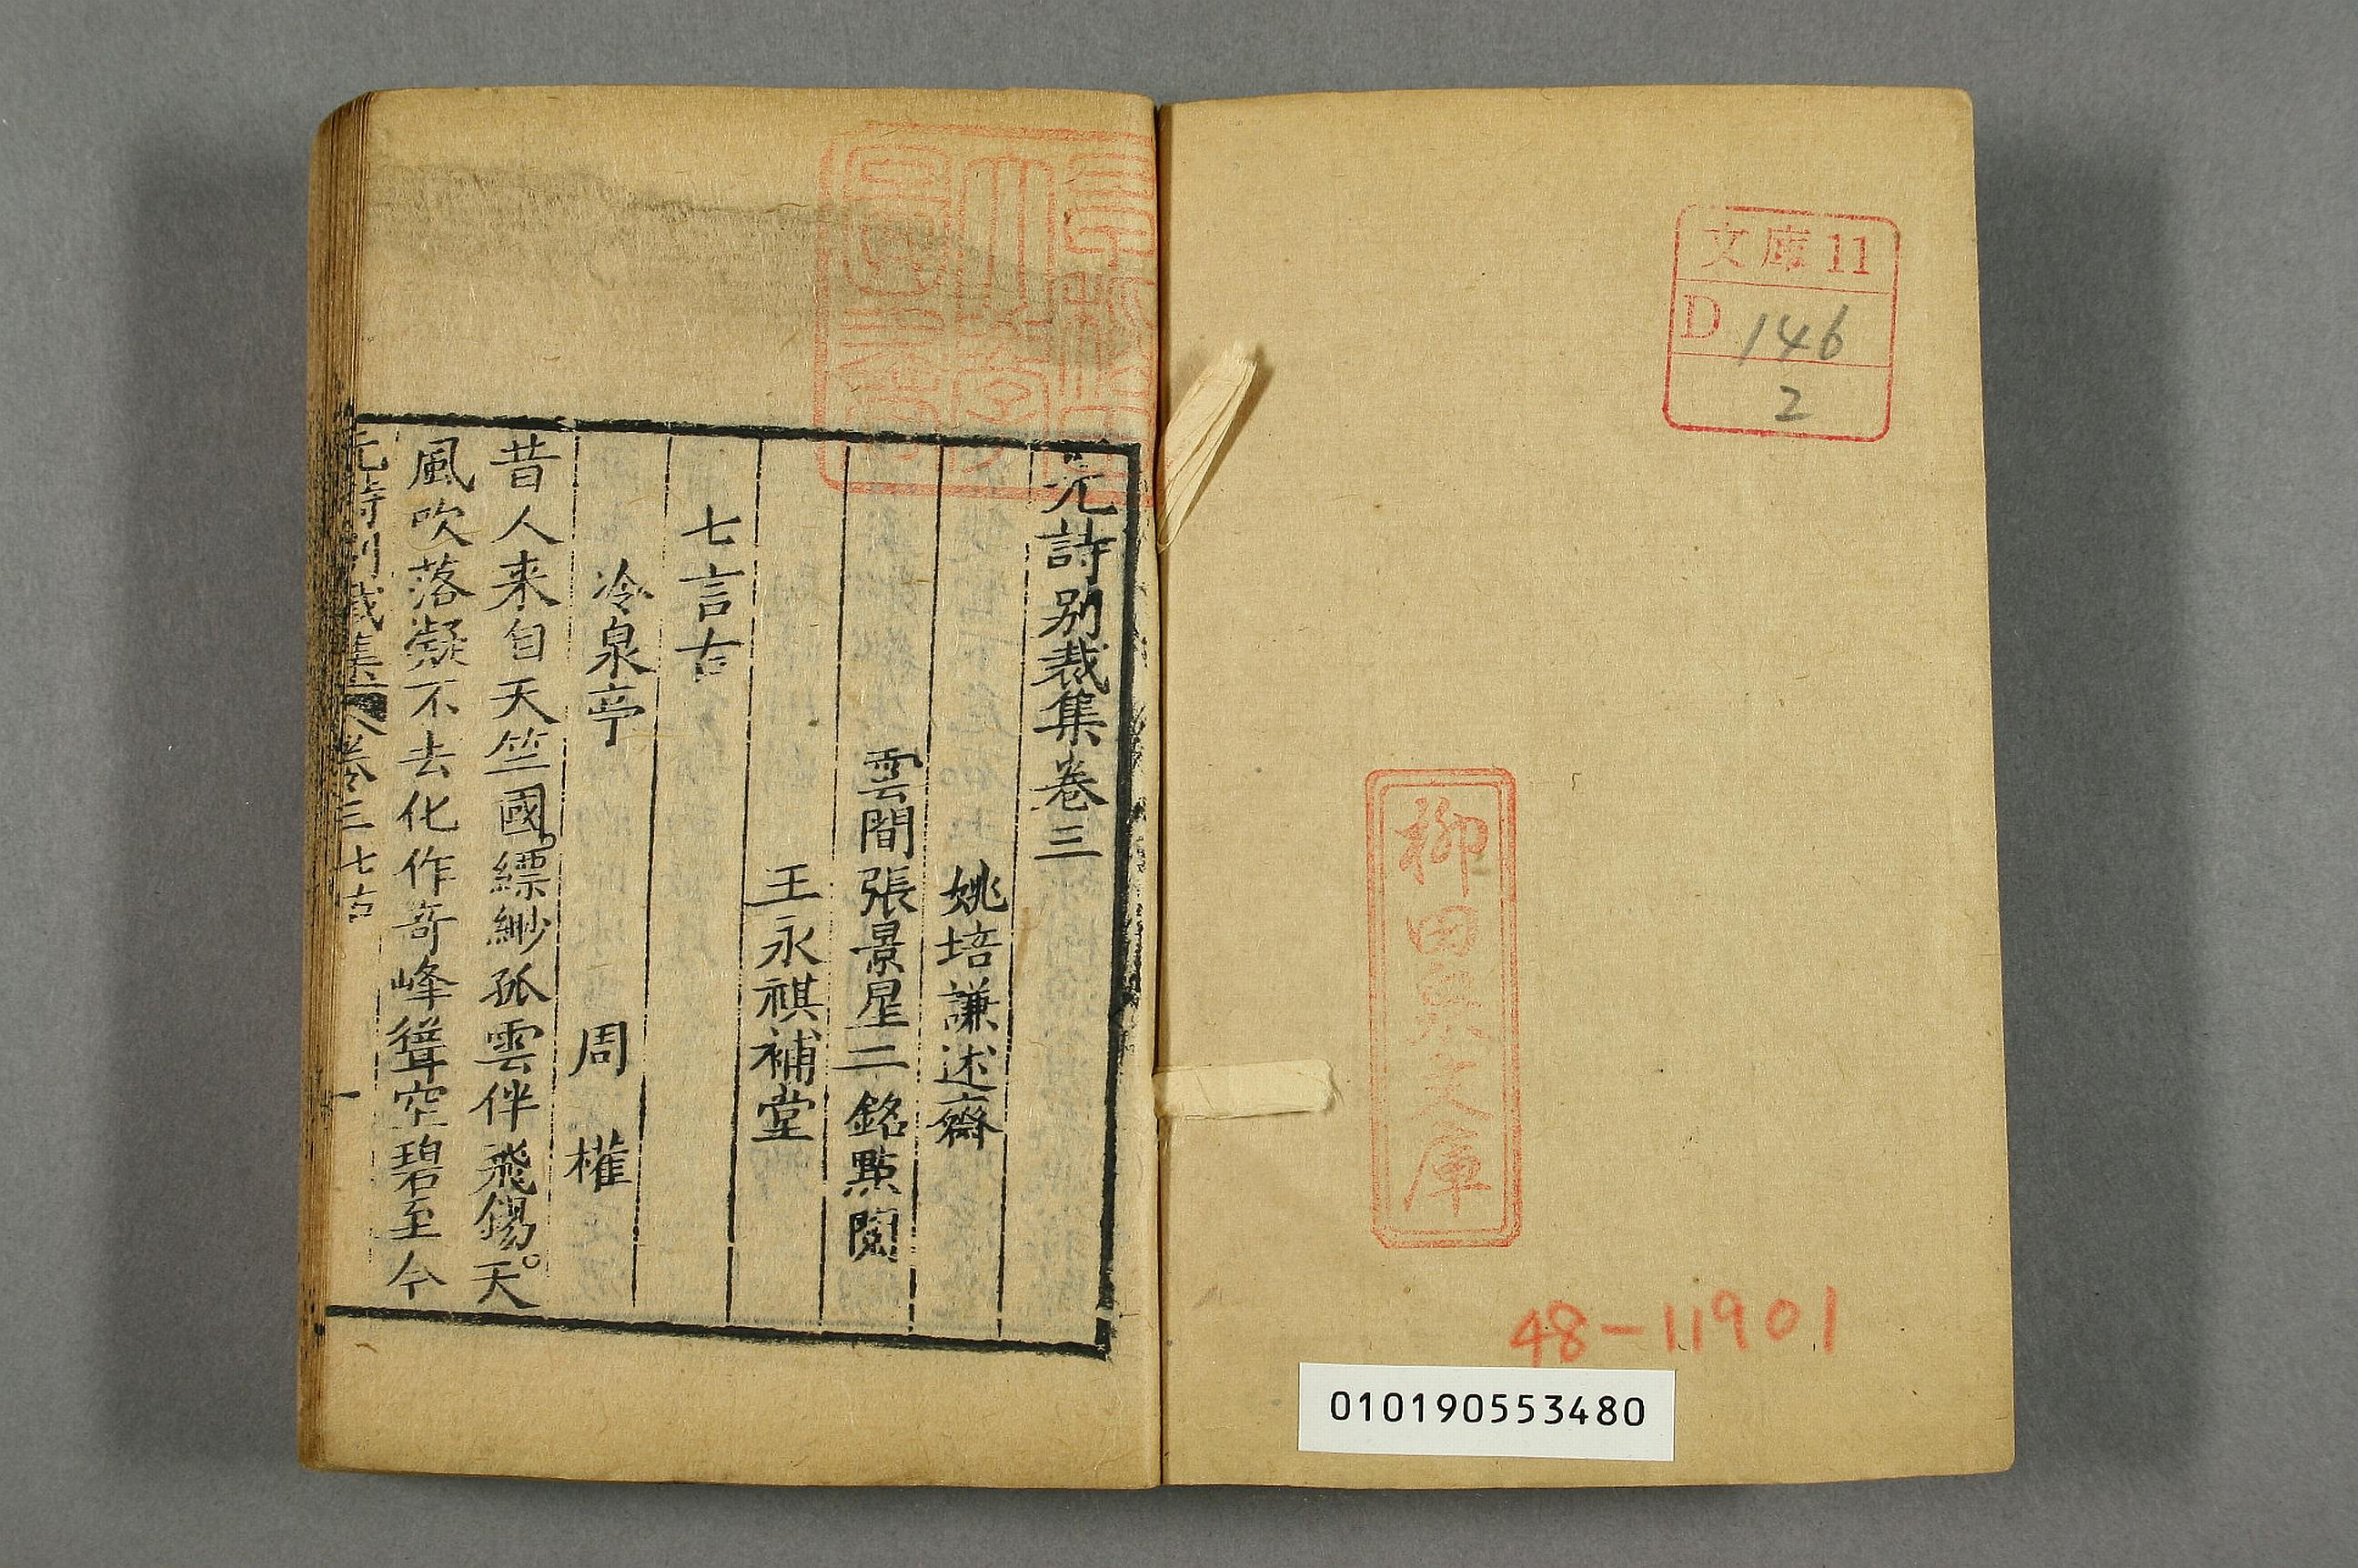 文庫11
D 146
2
柳田泉文庫
48-11901
010190553480
元詩别裁集卷三
姚培謙述齋
雲間張景星二銘點閱
王永祺補堂
七言古
冷泉亭 周權
昔人来自天竺國。縹緲孤雲伴飛錫。天
風吹落凝不去化作奇峰聳空碧至今
元詩別裁集 卷三 七古 一